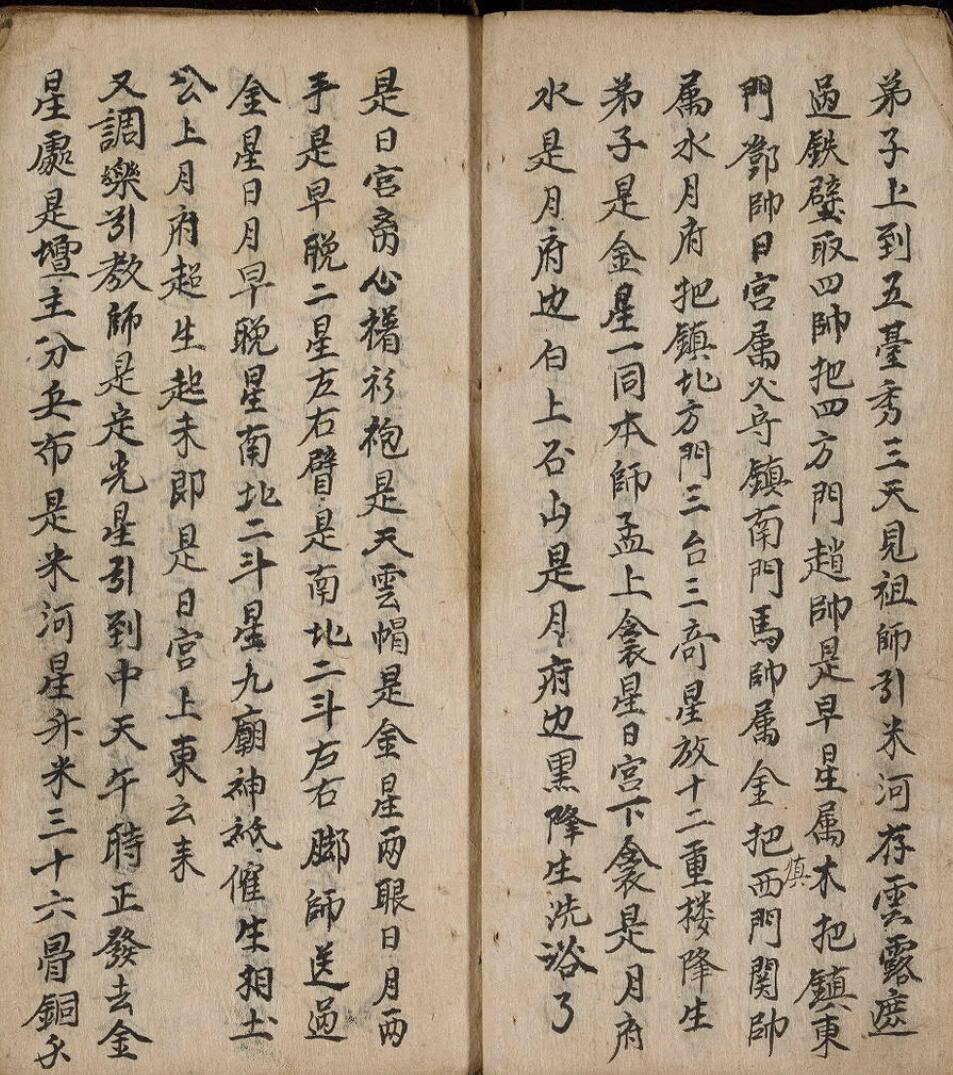 弟子上到五臺秀三天見祖師引米河存雲露遮
過鉄壁取四帥把四方門趙帥是早星属木把鎮東
門鄧帥日宮属火守鎮南門馬帥属金把鎮西門関帥
属水月府把鎮北方門三台三奇星放十二重楼降生
弟子是金星一同本師孟上衾星日宮下衾是月府
水是月府边白上石山是月府边黒降生洗浴了
是日宮离心禮衫袍是天雲帽是金星両眼日月両
手是早晩二星左右臂是南北二斗右右脚師送過
金星日月早晩星南北二斗星九廟神祇催生相土
公上月府超生起未即是日宮上東云来
又調樂引教師是定光星引到中天午時正發去金
星處是壇主分兵布是米河星外米三十六骨銅